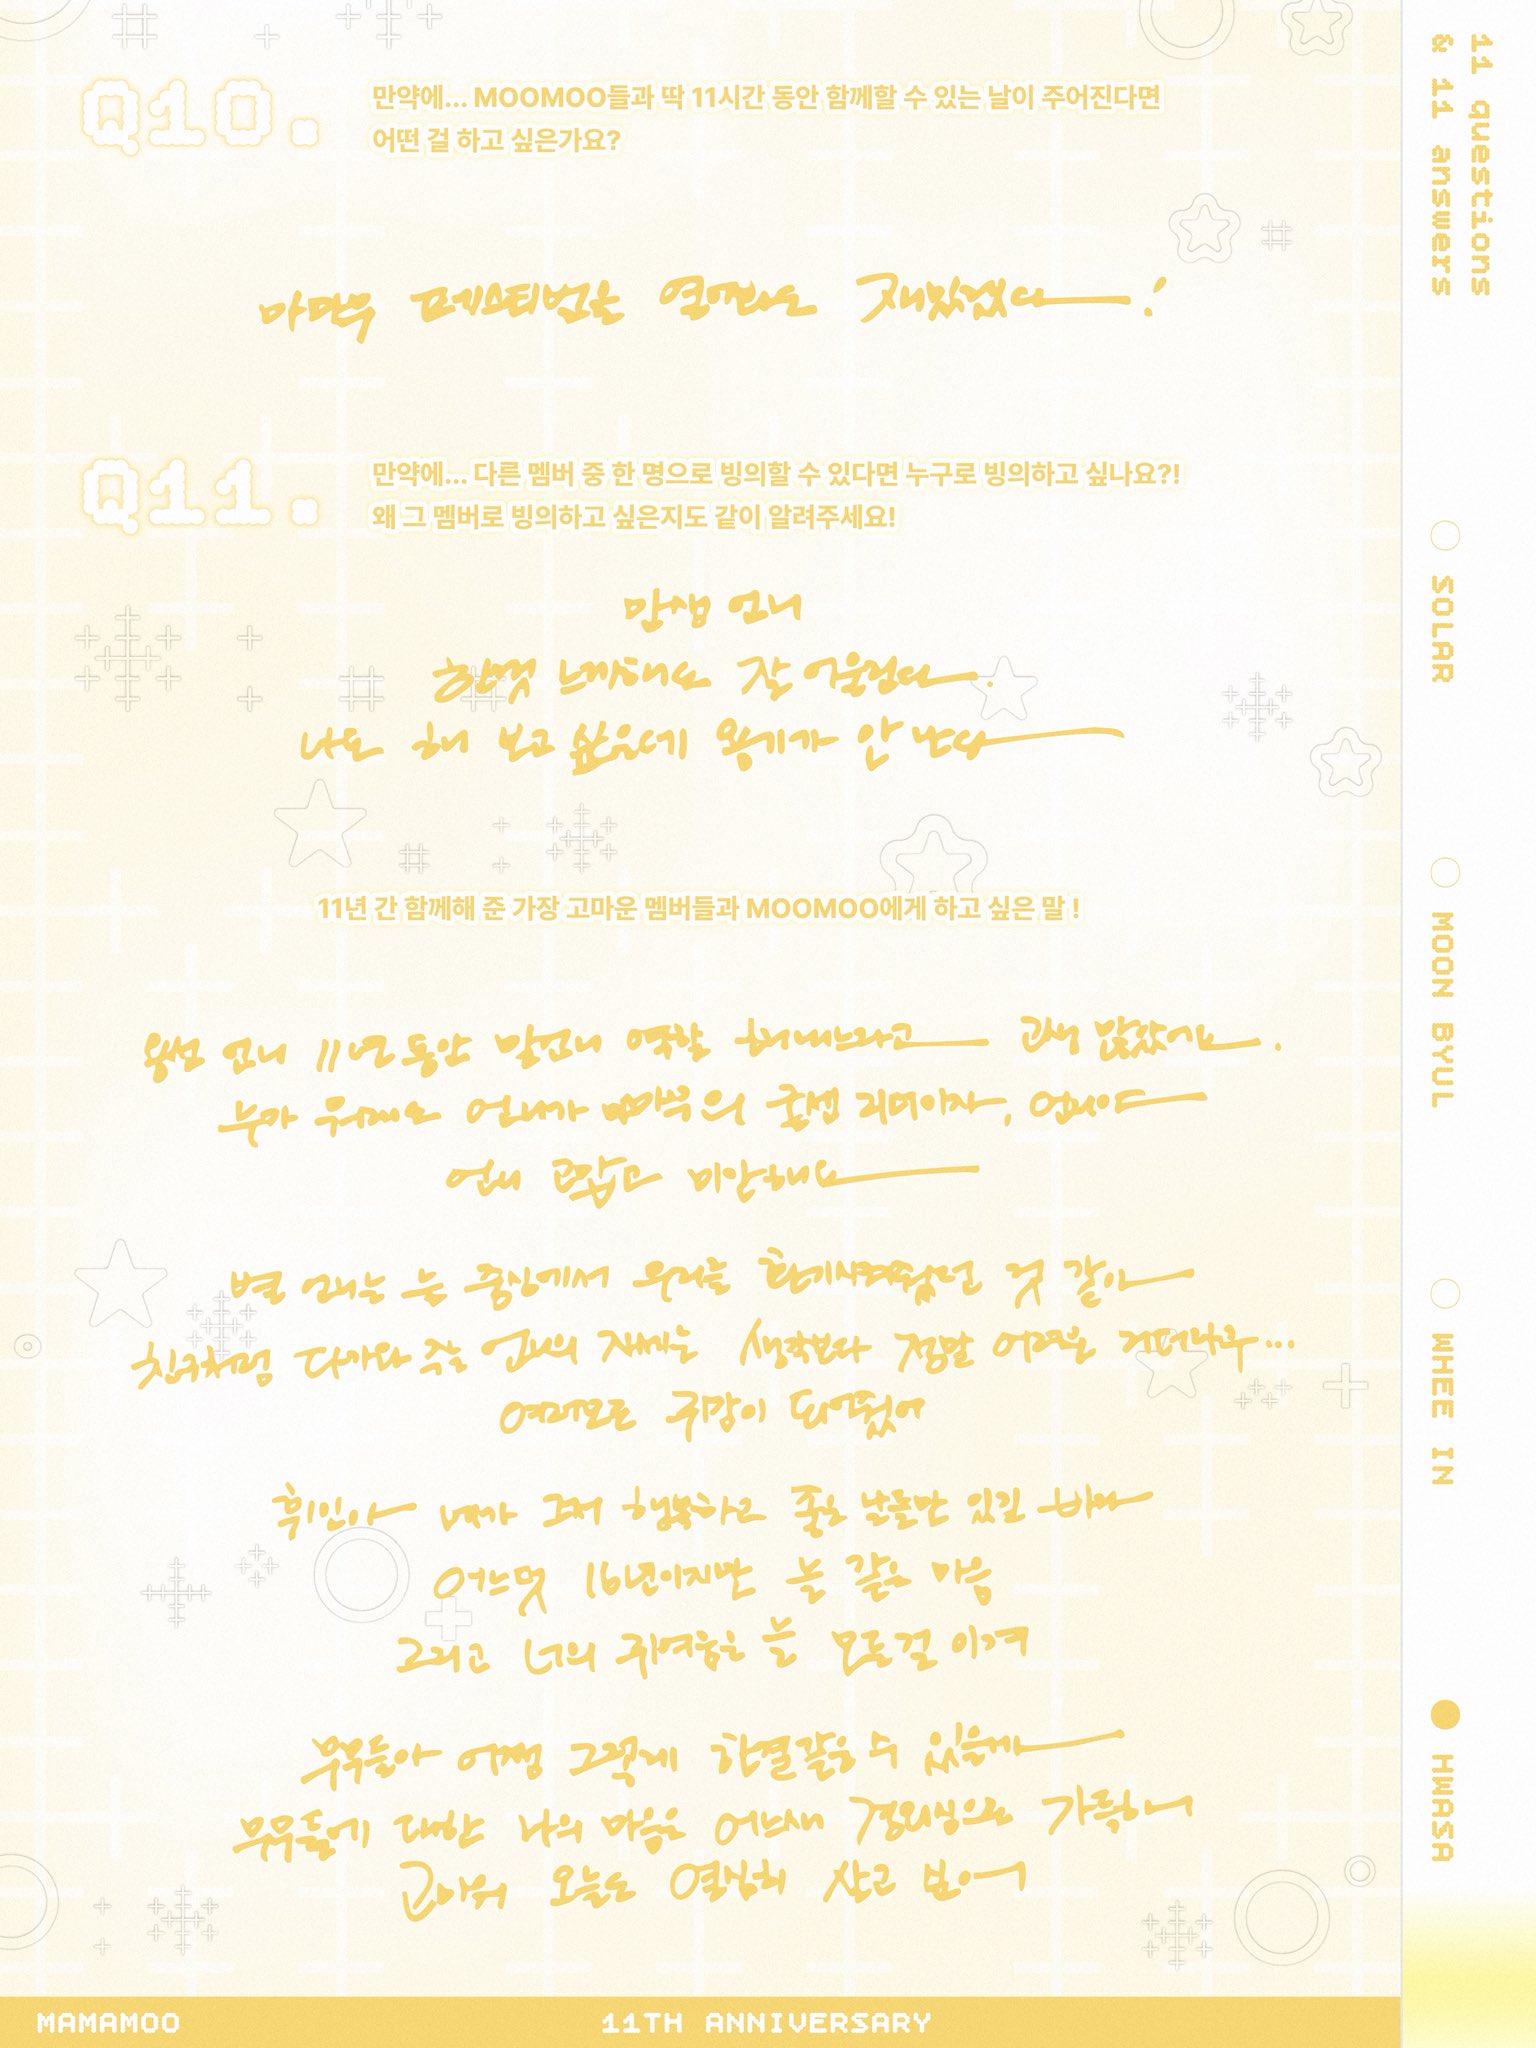 Q10.
만약에... MOOMOO들과 딱 11시간 동안 함께할 수 있는 날이 주어진다면
어떤 걸 하고 싶은가요?
마마무 페스티벌을 열어봐도 재밌겠다 !
Q11.
만약에... 다른 멤버 중 한 명으로 빙의할 수 있다면 누구로 빙의하고 싶나요?!
왜 그 멤버로 빙의하고 싶은지도 같이 알려주세요!
언니
한껏 느끼해도 잘 어울린다.
나도 해 보고 싶은데 용기가 안 난다
11년 간 함께해 준 가장 고마운 멤버들과 MOOMOO에게 하고 싶은 말 !
용선 언니 11년 동안 맏언니 역할 해내느라고 고생 많았어요.
누가 뭐래도 언니가 마마무의 굳센 리더이자, 언니야
언니 고맙고 미안해요
별 언니는 늘 중심에서 우리를 환기시켜줬던 것 같아
친구처럼 다가와 주는 언니의 자세는 생각보다 정말 어려운 거더라구...
여러모로 귀감이 되어줬어
휘인아 네가 그저 행복하고 좋은 날들만 있길 바라
어느덧 16년이지만 늘 같은 마음
그리고 너의 귀여움은 늘 모든걸 이겨
무무들아 어쩜 그렇게 한결같을 수 있을까
무무들에 대한 나의 마음은 어느새 경외심으로 가득하니
고마워 오늘도 열심히 살고 보자
11 questions
& 11 answers
SOLAR
MOON BYUL
WHEE IN
HWASA
MAMAMOO
11TH ANNIVERSARY